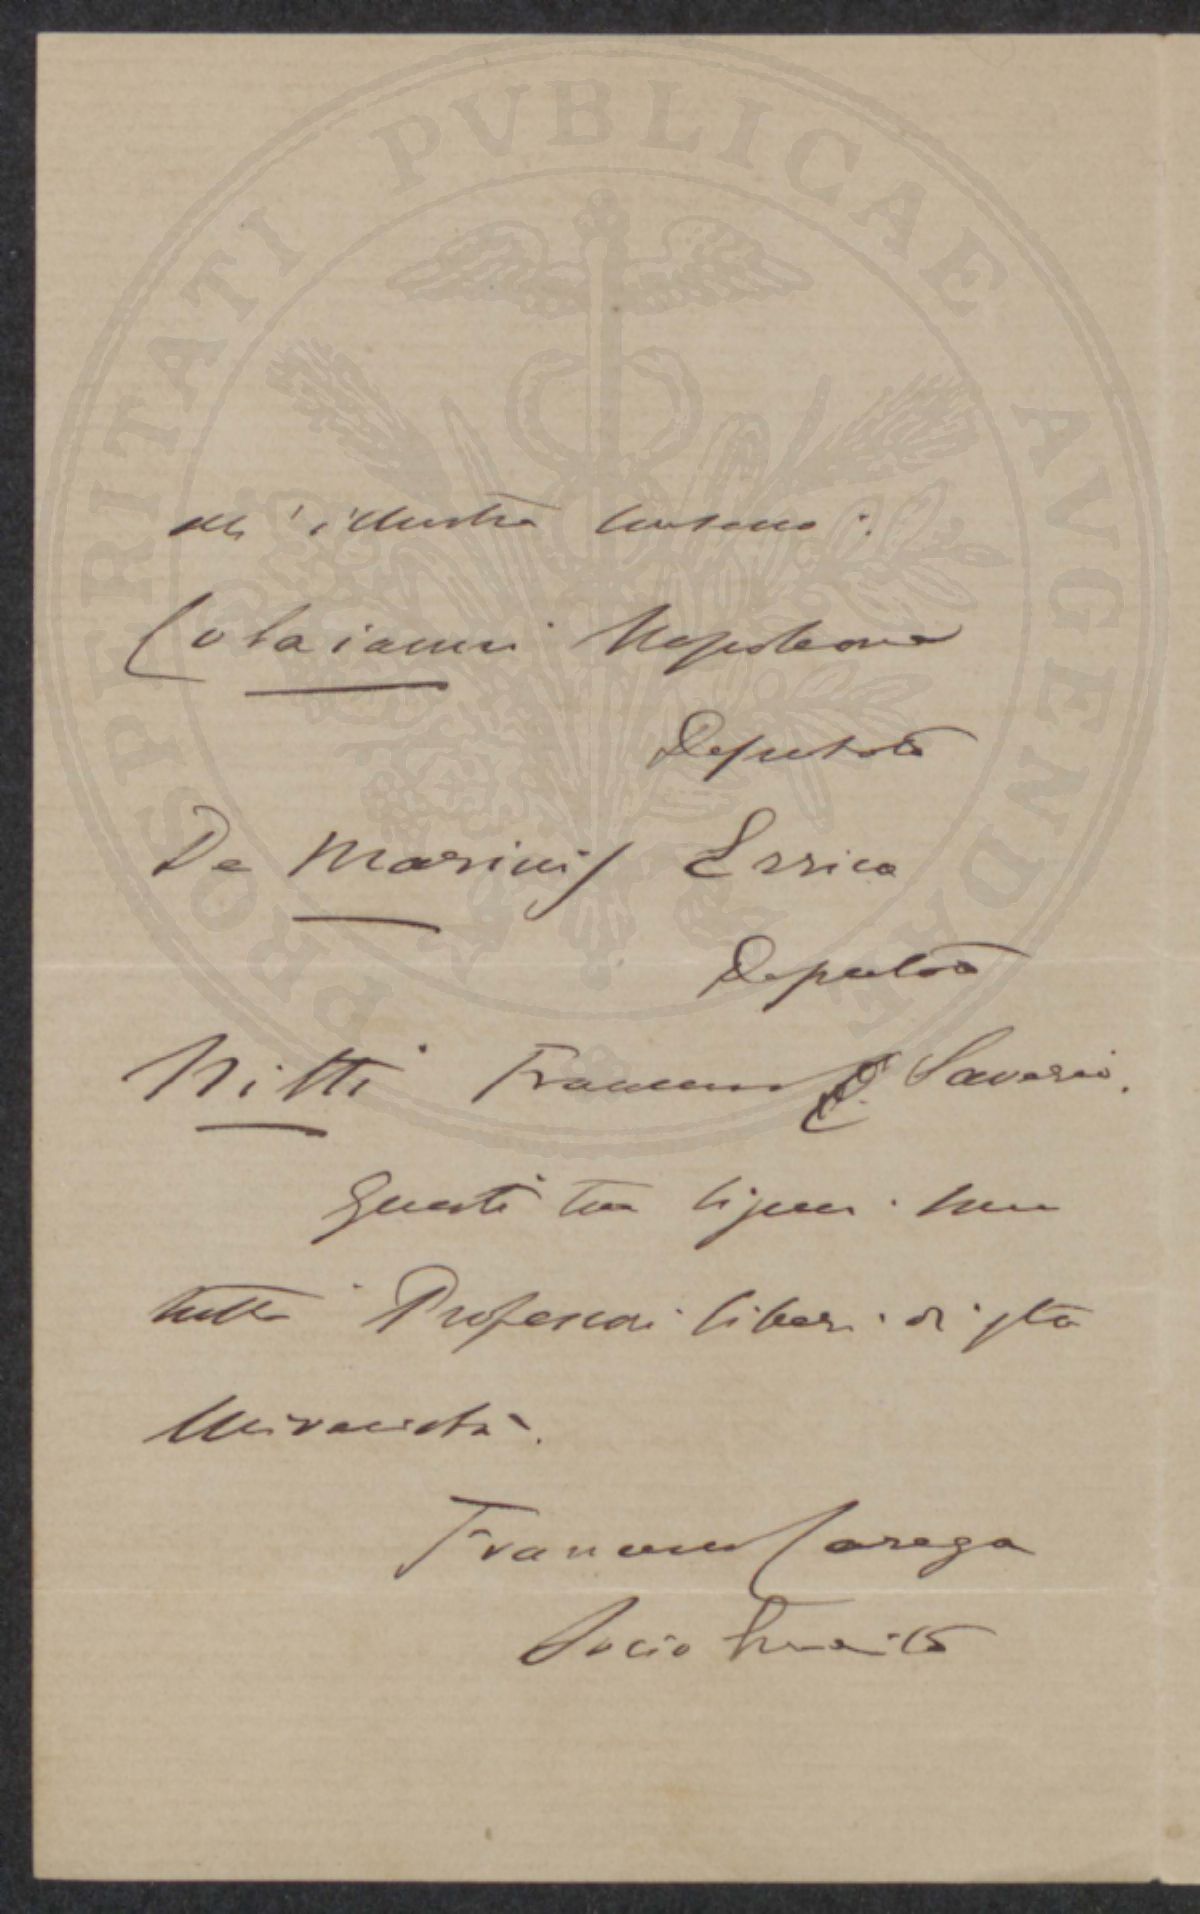 PROSPERITATI PVBLICAE AVGENDAE
all'illustre
Colaianni Napoleone
Deputato
De Marinis Errico
Deputato
Nitti Francesco Saverio.
Questi tre
tutti Professori liberi di qta
Università.
Francesco Carega
Socio